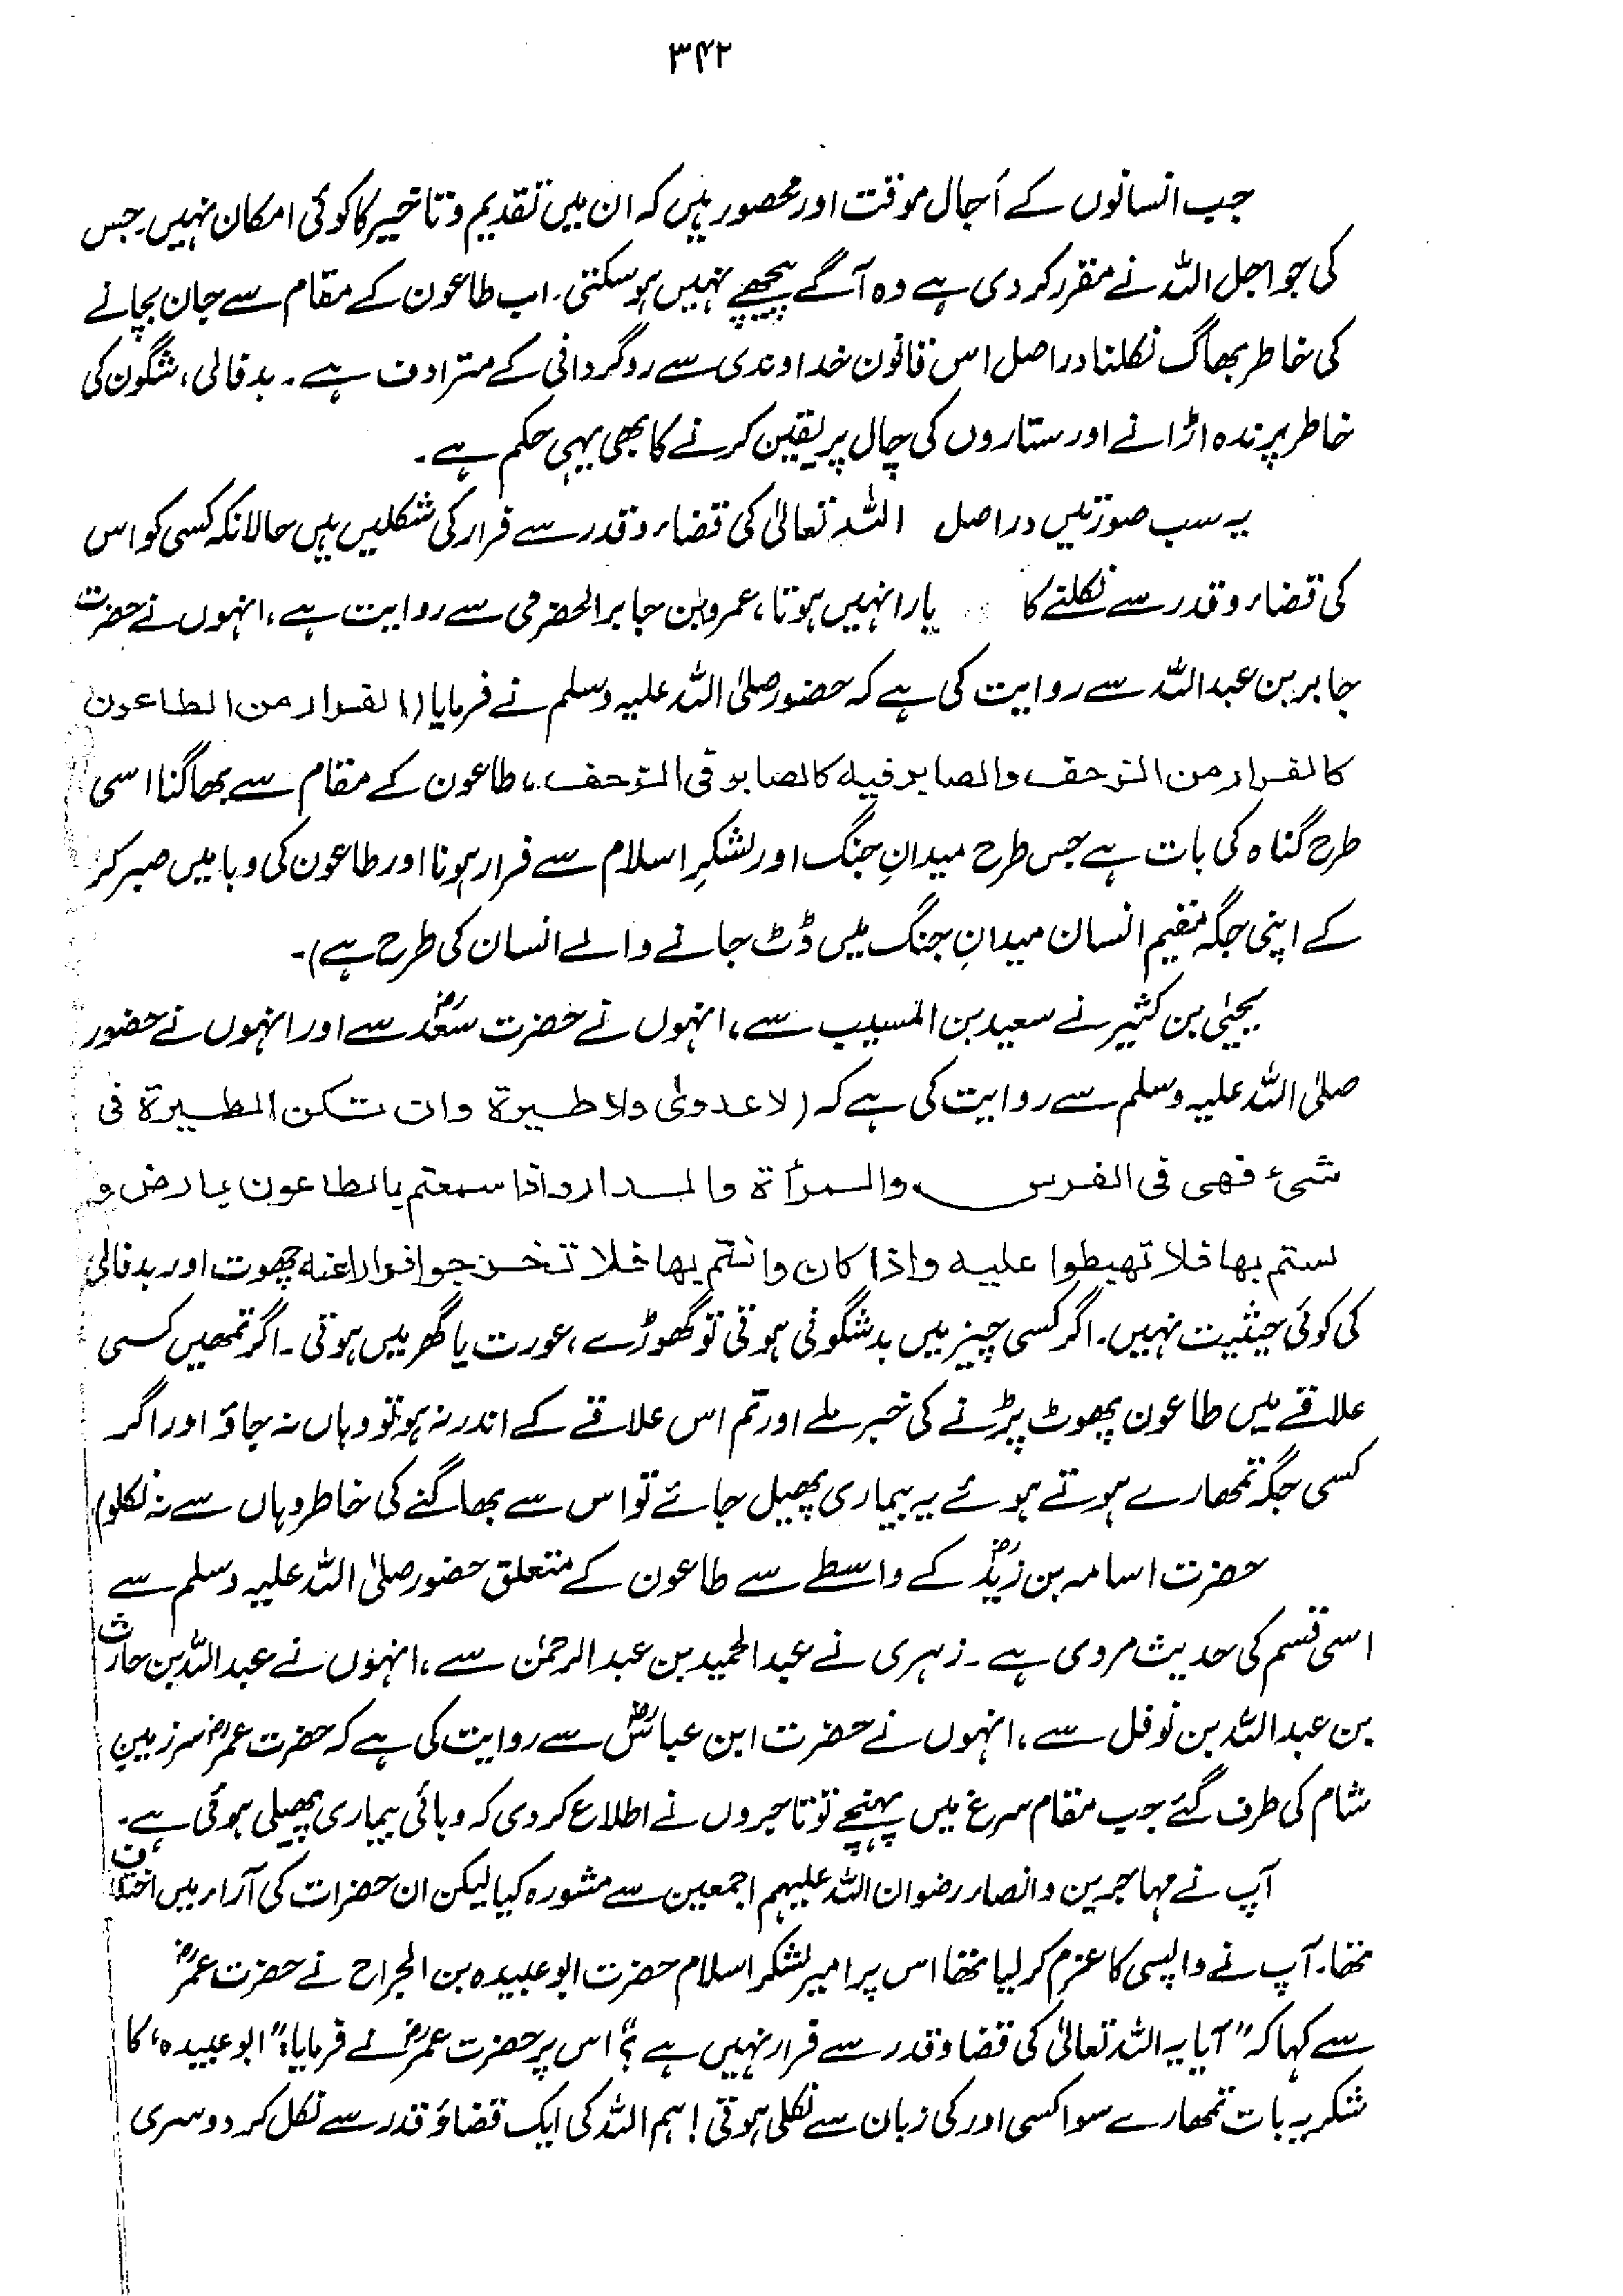 ۳۴۲
جب انسانوں کے اَجال موقت اور محصور ہیں کہ ان میں تقدیم و تاخیر کا کوئی امکان نہیں۔ جس
کی جو اجل اللہ نے مقرر کر دی ہے وہ آگے پیچھے نہیں ہو سکتی۔ اب طاعون کے مقام سے جان بچانے
کی خاطر بھاگ نکلنا دراصل اس قانون خداوندی سے روگردانی کے مترادف ہے۔ بدفالی، شگون کی
خاطر پرندہ اڑانے اور ستاروں کی چال پر یقین کرنے کا بھی یہی حکم ہے۔
یہ سب صورتیں دراصل اللہ تعالیٰ کی قضاء و قدر سے فرار کی شکلیں ہیں حالانکہ کسی کو اس
کی قضاء و قدر سے نکلنے کا یارا نہیں ہوتا، عمرو بن جابر الحضرمی سے روایت ہے، انہوں نے حضرت
جابر بن عبد اللہ سے روایت کی ہے کہ حضور صلی اللہ علیہ وسلم نے فرمایا (الفرار من الطاعون
کالفرار من الزحف والصابر فیه کالصابر فی الزحف، طاعون کے مقام سے بھاگنا اسی
طرح گناہ کی بات ہے جس طرح میدانِ جنگ اور لشکرِ اسلام سے فرار ہونا اور طاعون کی وبا میں صبر کر
کے اپنی جگہ مقیم انسان میدانِ جنگ میں ڈٹ جانے والے انسان کی طرح ہے)۔
یحییٰ بن کثیر نے سعید بن المسیب سے، انہوں نے حضرت سعدؓ سے اور انہوں نے حضور
صلی اللہ علیہ وسلم سے روایت کی ہے کہ (لا عدوی ولا طیرة وان تکن الطیرة فی
شیٔ فهی فی الفرس والمرأة والدار واذا سمعتم بالطاعون بارض و
لستم بها فلا تهبطوا علیه واذا کان وانتم بها فلا تخرجوا فرارا عنه چھوت اور بدفالی
کی کوئی حیثیت نہیں۔ اگر کسی چیز میں بدشگونی ہوتی تو گھوڑے، عورت یا گھر میں ہوتی۔ اگر تمھیں کسی
علاقے میں طاعون پھوٹ پڑنے کی خبر ملے اور تم اس علاقے کے اندر نہ ہو تو وہاں نہ جاؤ اور اگر
کسی جگہ تمھارے ہوتے ہوئے یہ بیماری پھیل جائے تو اس سے بھاگنے کی خاطر وہاں سے نہ نکلو)
حضرت اسامہ بن زیدؓ کے واسطے سے طاعون کے متعلق حضور صلی اللہ علیہ وسلم سے
اسی قسم کی حدیث مروی ہے۔ زہری نے عبد الحمید بن عبد الرحمٰن سے، انہوں نے عبد اللہ بن حارث
بن عبد اللہ بن نوفل سے، انہوں نے حضرت ابن عباسؓ سے روایت کی ہے کہ حضرت عمرؓ سرزمینِ
شام کی طرف گئے جب مقام سرغ میں پہنچے تو تاجروں نے اطلاع کر دی کہ وبائی بیماری پھیلی ہوئی ہے۔
آپ نے مہاجرین و انصار رضوان اللہ علیہم اجمعین سے مشورہ کیا لیکن ان حضرات کی آراء میں اختلاف
تھا۔ آپ نے واپسی کا عزم کر لیا تھا اس پر امیر لشکر اسلام حضرت ابو عبیدہ بن الجراح نے حضرت عمرؓ
سے کہا کہ "آیا یہ اللہ تعالیٰ کی قضا و قدر سے فرار نہیں ہے؟" اس پر حضرت عمرؓ نے فرمایا: "ابو عبیدہ، کا
شکریہ بات تمھارے سوا کسی اور کی زبان سے نکلی ہوتی! ہم اللہ کی ایک قضاؤ قدر سے نکل کر دوسری